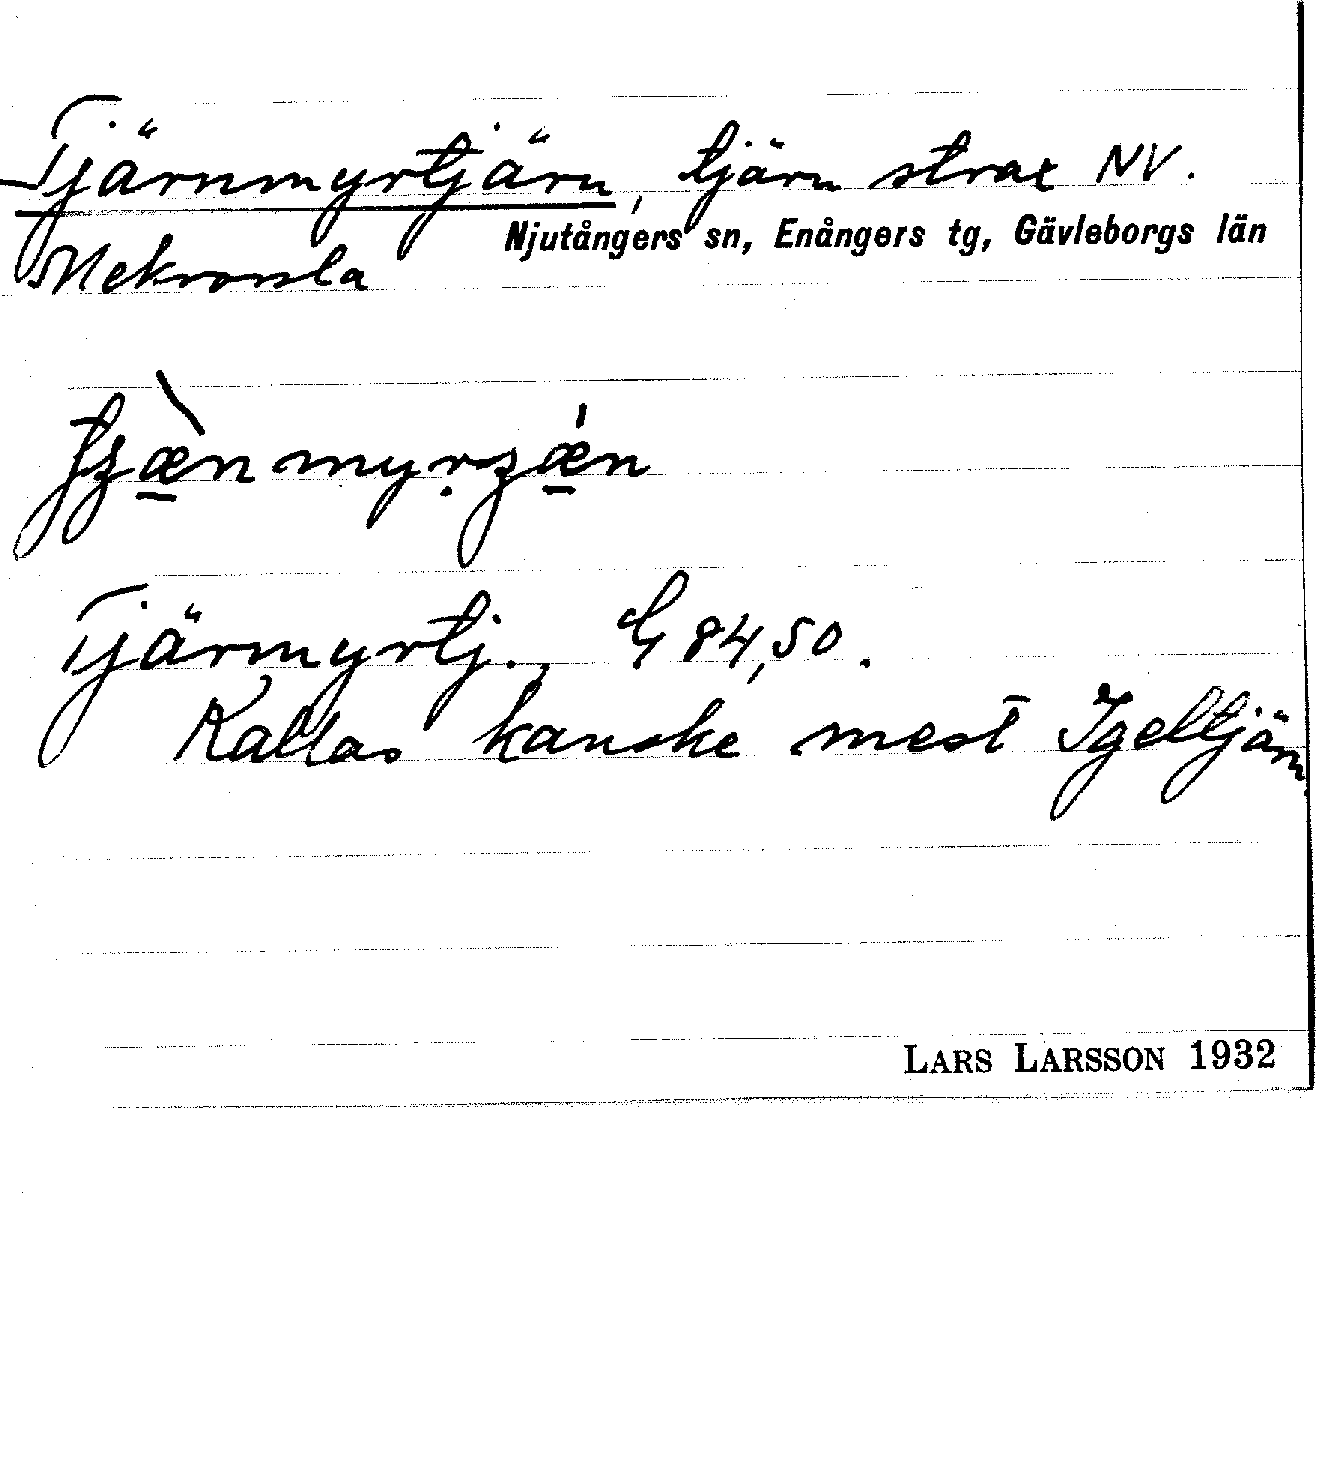 Tjärnmyrtjärn, tjärn strax NV.
Njutångers sn, Enångers tg, Gävleborgs län
Tjärmyrtj., G 84,50.
Kallas kanske mest Igeltjärn.
LARS LARSSON 1932